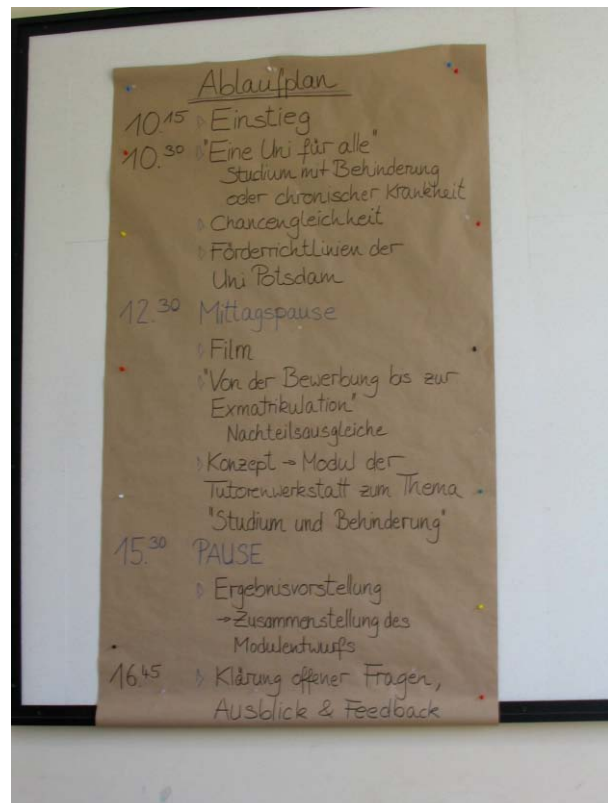 Ablaufplan
10.15 ▷ Einstieg
10.30 ▷ "Eine Uni für alle"
Studium mit Behinderung
oder chronischer Krankheit
▷ Chancengleichheit
▷ Förderrichtlinien der
Uni Potsdam
12.30 Mittagspause
▷ Film
▷ "Von der Bewerbung bis zur
Exmatrikulation"
Nachteilsausgleiche
▷ Konzept → Modul der
Tutorenwerkstatt zum Thema
"Studium und Behinderung"
15.30 PAUSE
▷ Ergebnisvorstellung
→ Zusammenstellung des
Modulentwurfs
16.45 ▷ Klärung offener Fragen,
Ausblick & Feedback